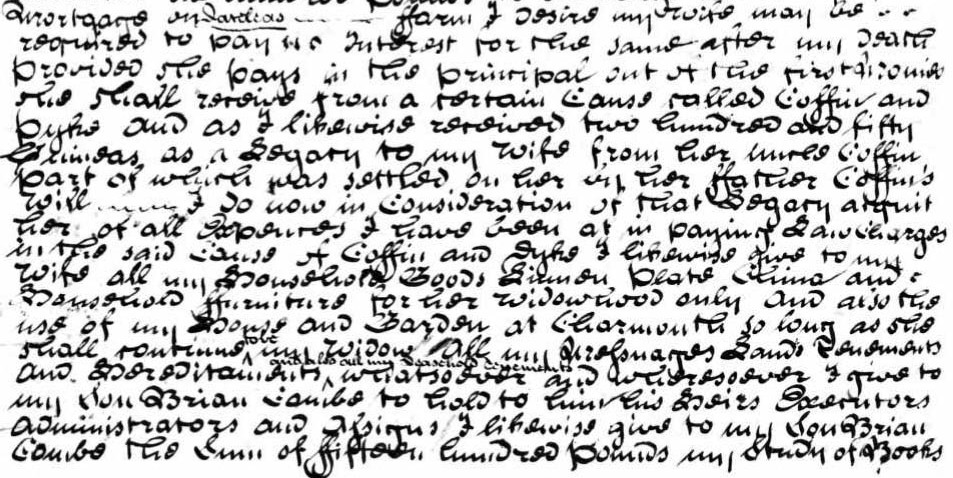 Mortgage on ffarm I desire my Wife may be
required to pay no Interest for the same after my Death
provided she pays in the principal out of the first Monies
she shall receive from a certain Cause called Coffin and
Dyke and as I likewise received two hundred and fifty
Guineas as a Legacy to my Wife from her uncle Coffin
part of which was settled on her by her ffather Coffin's
Will I do now in Consideration of that Legacy acquit
her of all Expences I have been at in paying Law Charges
in the said Cause of Coffin and Dyke I likewise give to my
Wife all my Household Goods Linnen Plate China and
Household ffurniture for her Widowhood only and also the
use of my House and Garden at Charmouth so long as she
shall continue to be my Widow All my Messuages Lands Tenements
and also all my Leasehold Tenements
and Hereditaments whatsoever and wheresoever I give to
my Son Brian Combe to hold to him his Heirs Executors
Administrators and Assigns I likewise give to my Son Brian
Combe the Sum of ffifteen hundred Pounds my Study of Books